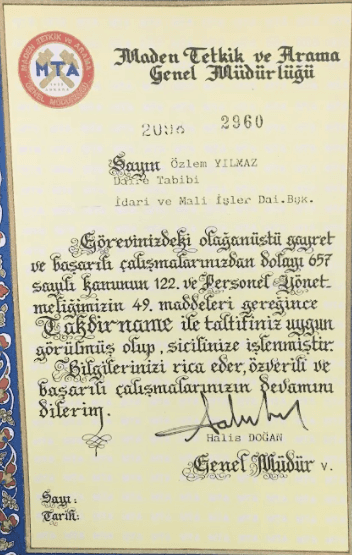 MADEN TETKİK ve ARAMA
MTA
GENEL MÜDÜRLÜĞÜ
Maden Tetkik ve Arama
Genel Müdürlüğü
2960
Sayın Özlem YILMAZ
Daire Tabibi
İdari ve Mali İşler Dai.Bşk.
Görevinizdeki olağanüstü gayret
ve başarılı çalışmalarınızdan dolayı 657
sayılı kanunun 122. ve Personel Yönet-
meliğimizin 49. maddeleri gereğince
Takdirname ile taltifiniz uygun
görülmüş olup, sicilinize işlenmiştir.
Bilgilerinizi rica eder, özverili ve
başarılı çalışmalarınızın devamını
dilerim.
Halis DOĞAN
Genel Müdür v.
Sayı:
Tarih: